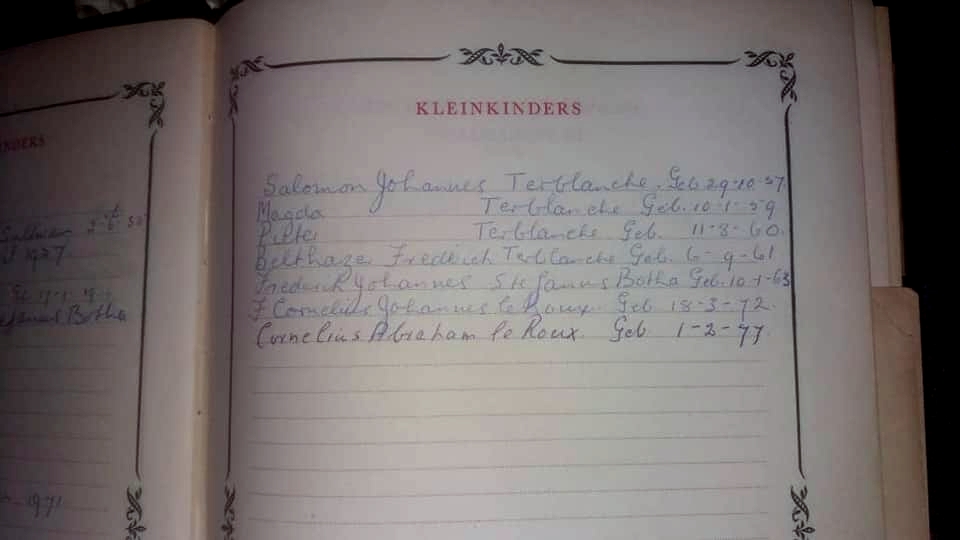 INDERS
1927.
Botha
1971
KLEINKINDERS
Salomon Johannes Terblanche. Geb 29-10-57.
Magda Terblanche Geb. 10-1-59
Pieter Terblanche Geb. 11-8-60.
Belthazer Fredrich Terblanche Geb. 6-9-61
Frederik Johannes Stefanus Botha Geb. 10-1-63
F Cornelius Johannes le Roux. Geb 18-3-72.
Cornelius Abraham le Roux. Geb 1-2-77.